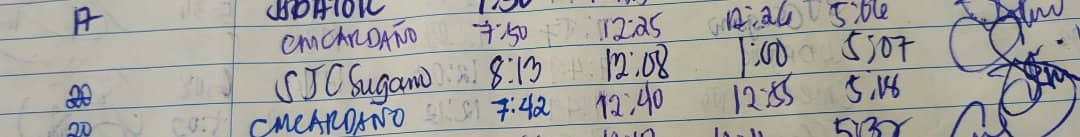 A
CMCARDAÑO 7:50 12:25 12:26 5:06
SJC Sugano 8:13 12:08 1:00 5:07
20 CMCARDAÑO 7:42 12:40 12:55 5:18
20